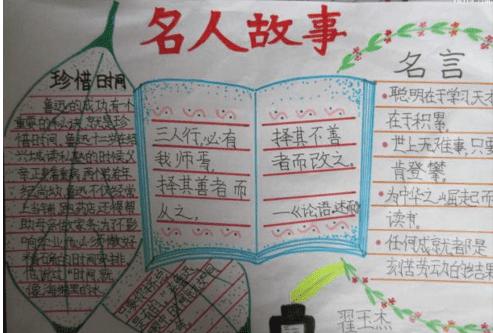 名人故事
珍惜日间
鲁迅的成功有个
重要的秘诀就是珍
惜时间,鲁迅十二岁在绍
兴城读私塾的时候父
亲正身患重病两个弟弟
年纪尚幼鲁迅不仅经常
上当铺跑药店还得帮
助母亲做家务为不影
响学业他必须做好
精
时间就
像海绵里的水
三人行,必有
我师焉,
择其善者而
从之,
择其不善
者而改之。
——《论语·述而》
名言
聪明在于学习天
在于积累,
世上无难事,只要
肯登攀,
为中华之崛起而
读书,
任何成就都是
刻苦劳动的结果
翟玉杰